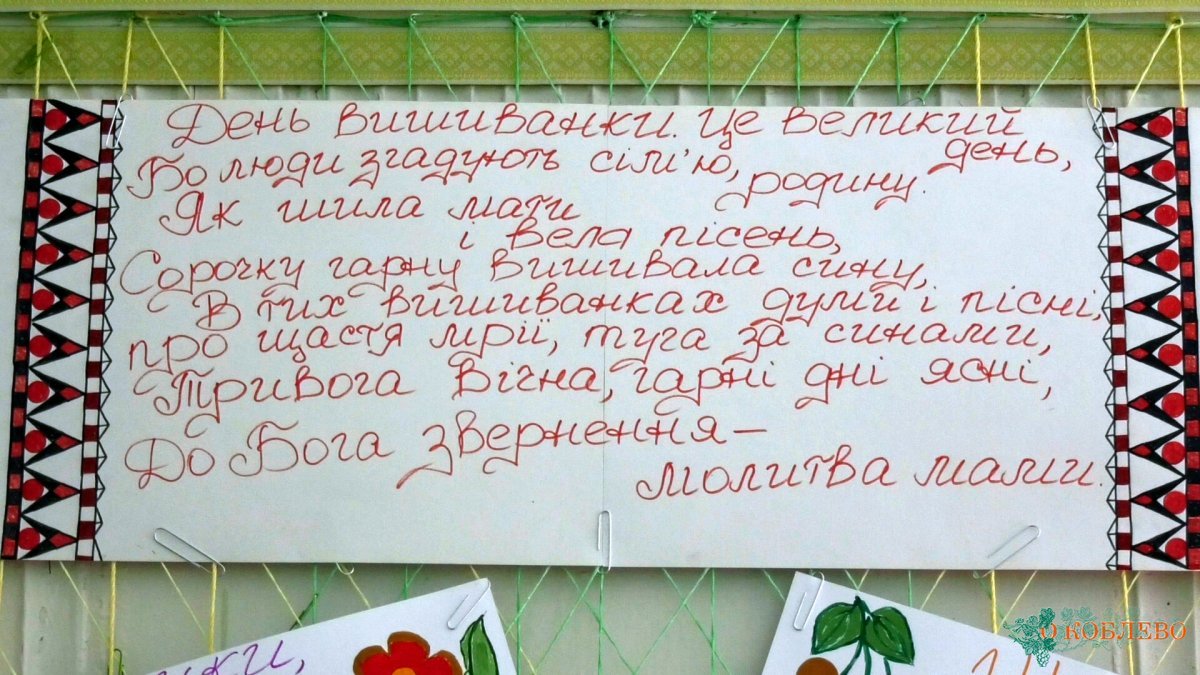 День вишиванки. Це великий
день,
Бо люди згадують сім'ю,
родину.
Як шила мати
і вела пісень,
Сорочку гарну вишивала сину,
В тих вишиванках думи і пісні,
про щастя мрії, туга за синами,
Тривога вічна, гарні дні ясні,
До Бога звернення –
молитва мами.
О КОБЛЕВО